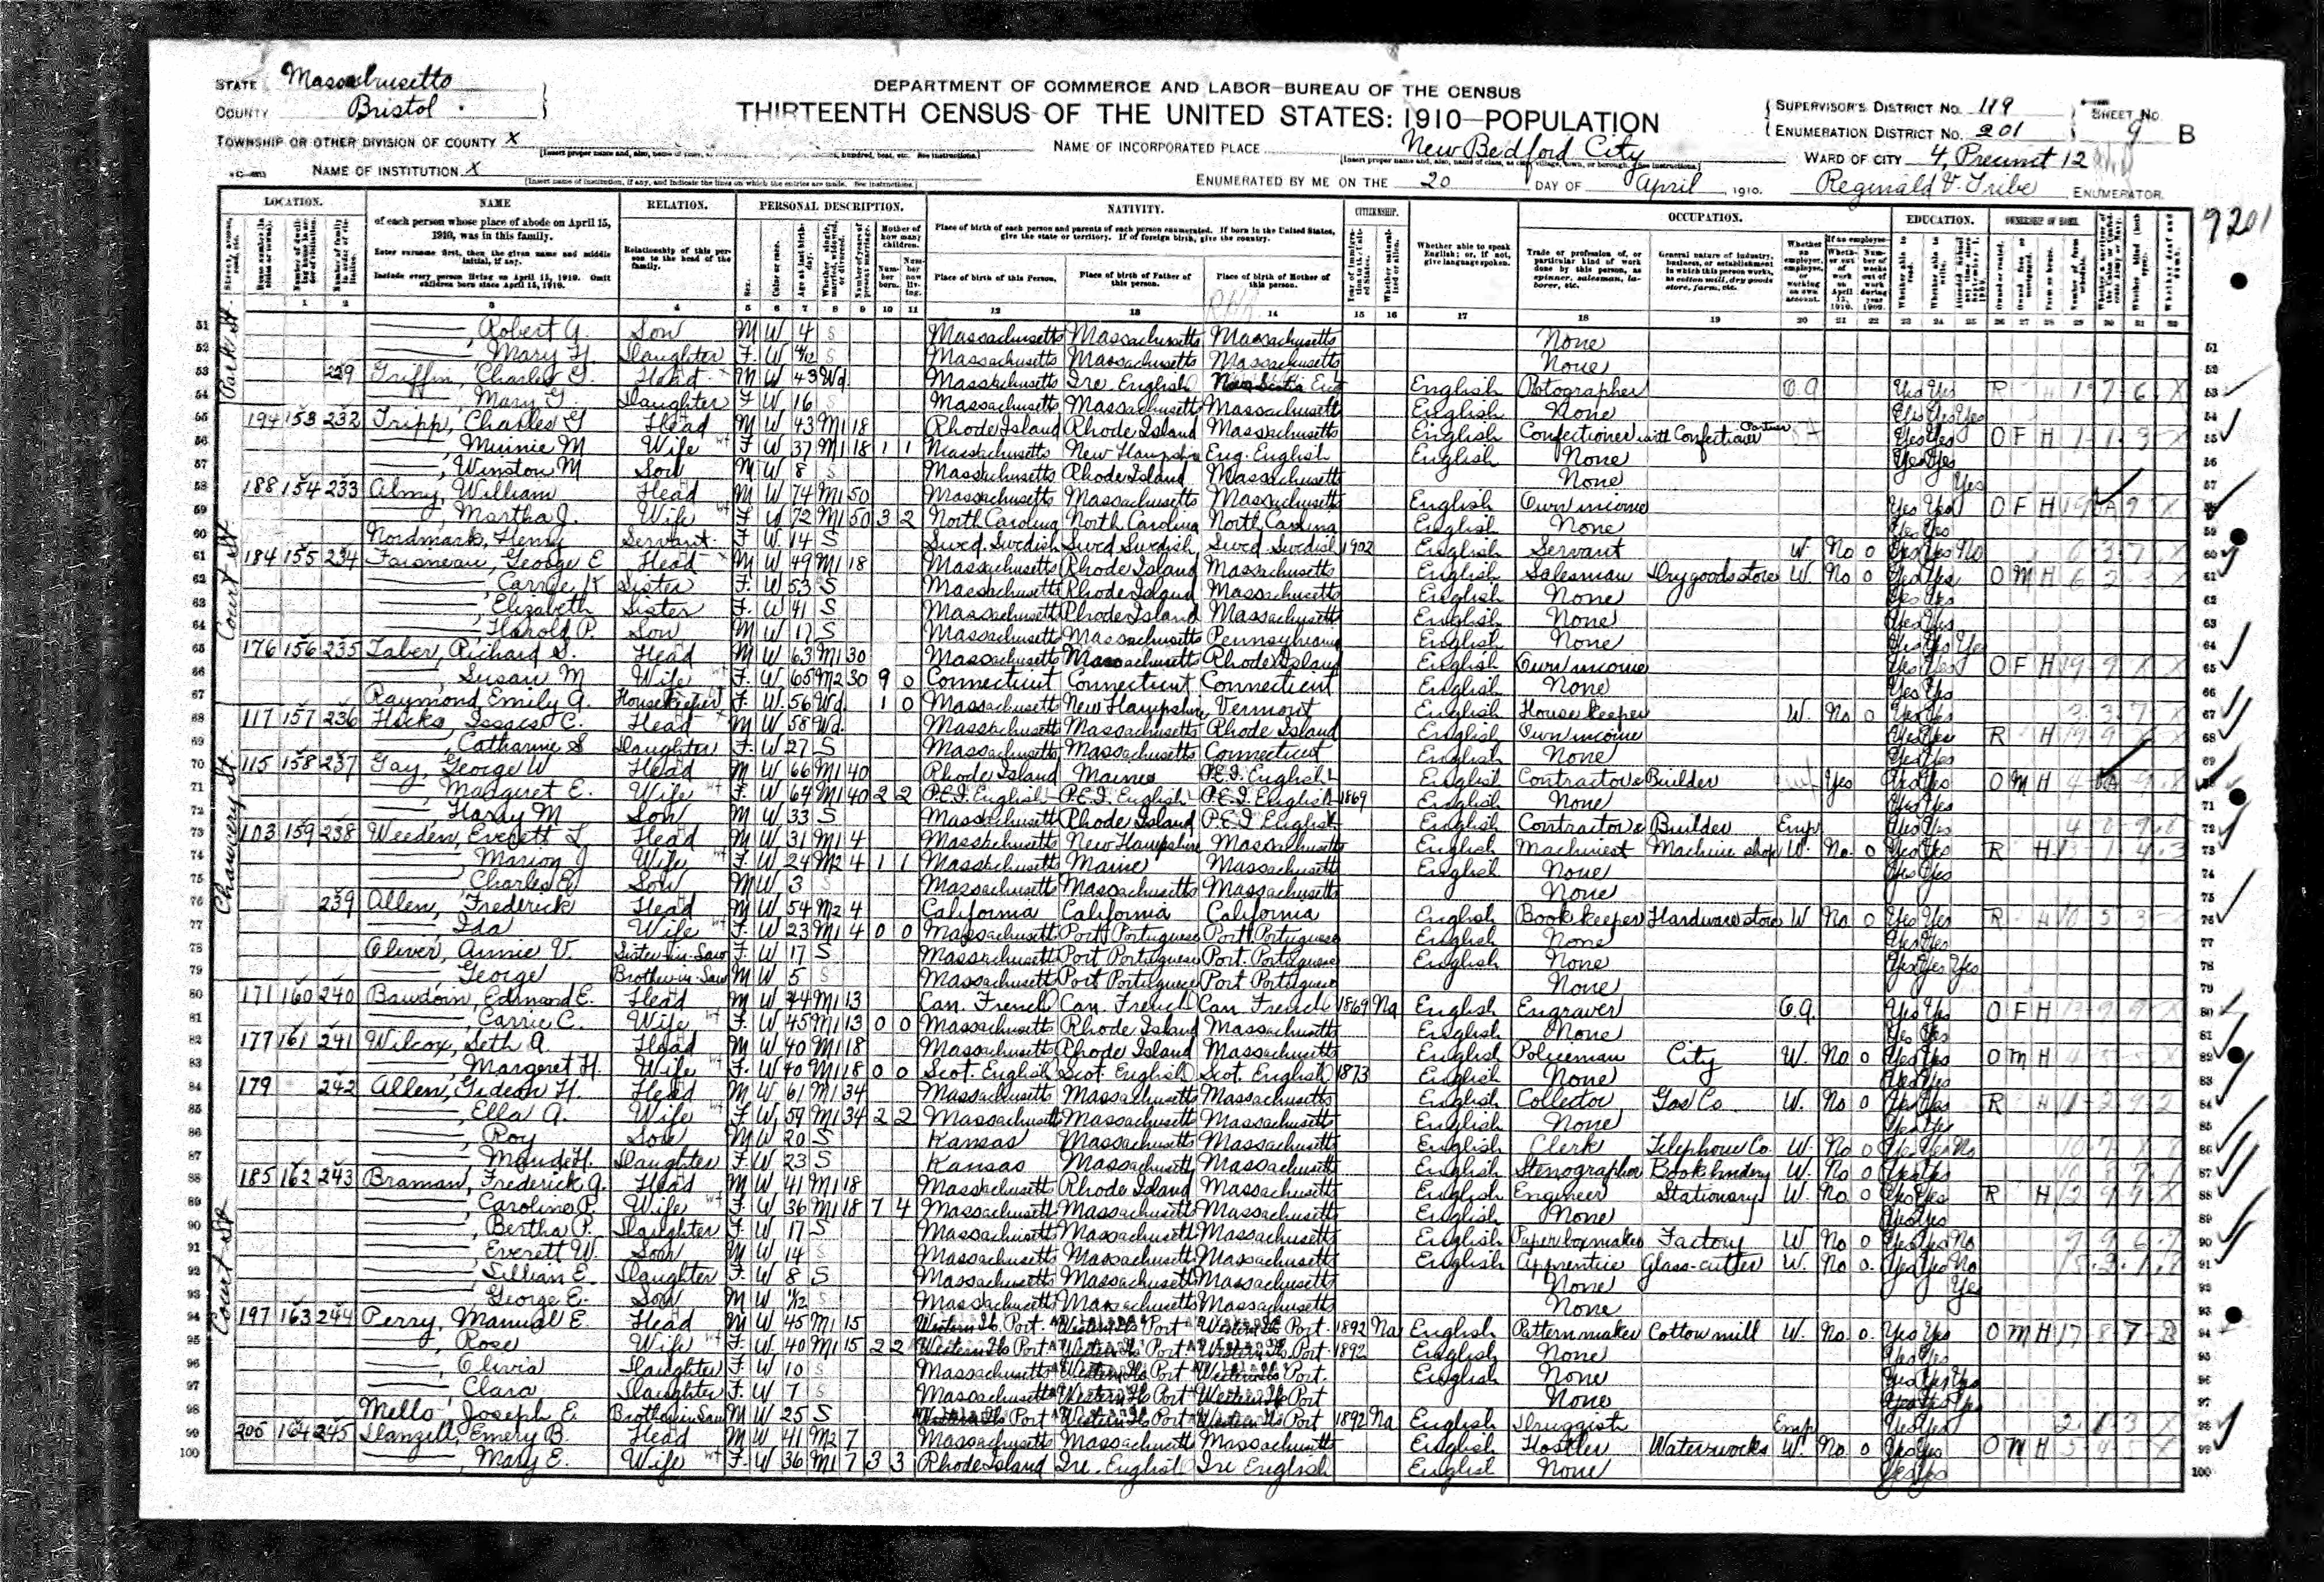 STATE Massachusetts
COUNTY Bristol
DEPARTMENT OF COMMERCE AND LABOR—BUREAU OF THE CENSUS
THIRTEENTH CENSUS OF THE UNITED STATES: 1910—POPULATION
SUPERVISOR'S DISTRICT No. 119
ENUMERATION DISTRICT No. 201
SHEET No. 9 B
TOWNSHIP OR OTHER DIVISION OF COUNTY X
NAME OF INCORPORATED PLACE New Bedford City
WARD OF CITY 4, Precinct 12
NAME OF INSTITUTION X
ENUMERATED BY ME ON THE 20 DAY OF April, 1910. Reginald V. Tribe ENUMERATOR.
9201
LOCATION. NAME RELATION. PERSONAL DESCRIPTION. NATIVITY. CITIZENSHIP. OCCUPATION. EDUCATION. OWNERSHIP OF HOME.
of each person whose place of abode on April 15, 1910, was in this family.
Enter surname first, then the given name and middle initial, if any.
Include every person living on April 15, 1910. Omit children born since April 15, 1910.
Relationship of this person to the head of the family.
Place of birth of each person and parents of each person enumerated. If born in the United States, give the state or territory. If of foreign birth, give the country.
Place of birth of this Person. Place of birth of Father of this person. Place of birth of Mother of this person.
Whether able to speak English; or, if not, give language spoken.
Park St.
51 Robert A. Son M W 4 S Massachusetts Massachusetts Massachusetts None
52 Mary H. Daughter F W Massachusetts Massachusetts Massachusetts None
53 229 Griffin, Charles G. Head M W 43 Wd Massachusetts Ire. English English Potographer O.A. Yes Yes R
54 Mary G. Daughter F W 16 S Massachusetts Massachusetts Massachusetts English None Yes Yes Yes
Court St
55 194 153 232 Tripp, Charles G Head M W 43 M1 18 Rhode Island Rhode Island Massachusetts English Confectioner Yes Yes O F H
56 Minnie M Wife F W 37 M1 18 1 1 Massachusetts New Hampshire Eng. English English None Yes Yes
57 Winston M Son M W 8 S Massachusetts Rhode Island Massachusetts None Yes
58 188 154 233 Almy, William Head M W 74 M1 50 Massachusetts Massachusetts Massachusetts English Own income Yes Yes O F H
59 Martha J. Wife F W 72 M1 50 3 2 North Carolina North Carolina North Carolina English None Yes Yes
60 Nordmark, Servant F W 14 S Swed. Swedish Swed Swedish Swed Swedish 1902 English Servant W. No 0 Yes Yes No
61 184 155 234 George E Head M W 49 M1 18 Massachusetts Rhode Island Massachusetts English Salesman Dry goods store W. No 0 Yes Yes O M H
62 Carrie K Sister F. W 53 S Massachusetts Rhode Island Massachusetts English None Yes Yes
63 Elizabeth Sister F. W 41 S Massachusetts Rhode Island Massachusetts English None Yes Yes
64 Harold P. Son M W 17 S Massachusetts Massachusetts Pennsylvania English None Yes Yes Yes
65 176 156 235 Taber, Richard S. Head M W 63 M1 30 Massachusetts Massachusetts Rhode Island English Own income Yes Yes O F H
66 Susan M Wife F. W 65 M2 30 9 0 Connecticut Connecticut Connecticut English None Yes Yes
67 Raymond, Emily A. Housekeeper F. W. 56 Wd. 1 0 Massachusetts New Hampshire Vermont English House keeper W. No 0 Yes Yes
Chancery St.
68 117 157 236 Hicks, Isaac C. Head M W 58 Wd. Massachusetts Massachusetts Rhode Island English Own income Yes Yes R H
69 Catharine S Daughter F. W 27 S Massachusetts Massachusetts Connecticut English None Yes Yes
70 115 158 237 Gay, George W Head M W 66 M1 40 Rhode Island Maine P.E.I. English English Contractor & Builder Yes Yes Yes O M H
71 Margaret E. Wife F. W 64 M1 40 2 2 P.E.I. English P.E.I. English P.E.I. English 1869 English None Yes Yes
72 Harry M Son M W 33 S Massachusetts Rhode Island P.E.I English English Contractor & Builder Emp Yes Yes
73 103 159 238 Weeden, Everett L Head M W 31 M1 4 Massachusetts New Hampshire Massachusetts English Machinest Machine shop W. No. 0 Yes Yes R H
74 Marion J Wife F. W 24 M2 4 1 1 Massachusetts Maine Massachusetts English None Yes Yes
75 Charles E Son M W 3 S Massachusetts Massachusetts Massachusetts None
76 239 Allen, Frederick Head M W 54 M2 4 California California California English Book keeper Hardware store W No 0 Yes Yes R H
77 Ida Wife F W 23 M1 4 0 0 Massachusetts Port Portuguese Port Portuguese English None Yes Yes
78 Oliver, Annie V. Sister-in-Law F. W 17 S Massachusetts Port Portuguese Port. Portuguese English None Yes Yes Yes
79 George Brother-in-Law M W 5 S Massachusetts Port Portuguese Port Portuguese None
80 171 160 240 Baudoin, Edmund E. Head M W 44 M1 13 Can. French Can. French Can. French 1869 Na English Engraver O.A. Yes Yes O F H
81 Carrie C. Wife F. W 45 M1 13 0 0 Massachusetts Rhode Island Massachusetts English None Yes Yes
82 177 161 241 Wilcox, Seth A. Head M W 40 M1 18 Massachusetts Rhode Island Massachusetts English Policeman City W. No 0 Yes Yes O M H
83 Margeret H. Wife F. W 40 M1 18 0 0 Scot. English Scot. English Scot. English 1873 English None Yes Yes
84 179 242 Allen, Gideon H. Head M W 61 M1 34 Massachusetts Massachusetts Massachusetts English Collector Gas Co W. No 0 Yes Yes R H
85 Ella A. Wife F W. 59 M1 34 2 2 Massachusetts Massachusetts Massachusetts English None Yes Yes
86 Roy Son M W 20 S Kansas Massachusetts Massachusetts English Clerk Telephone Co. W. No 0 Yes Yes No
87 Maude H. Daughter F. W 23 S Kansas Massachusetts Massachusetts English Stenographer Book bindery W. No 0 Yes Yes
Court St
88 185 162 243 Braman, Frederick A. Head M W 41 M1 18 Massachusetts Rhode Island Massachusetts English Engineer Stationary W. No 0 Yes Yes R H
89 Caroline P. Wife F. W 36 M1 18 7 4 Massachusetts Massachusetts Massachusetts English None Yes Yes
90 Bertha P. Daughter F. W 17 S Massachusetts Massachusetts Massachusetts English Paper boxmaker Factory W No 0 Yes Yes No
91 Everett W. Son M W 14 S Massachusetts Massachusetts Massachusetts English Apprentice Glass-cutter W. No 0. Yes Yes No
92 Lillian E. Daughter F. W 8 S Massachusetts Massachusetts Massachusetts None Yes
93 George E. Son M W S Massachusetts Massachusetts Massachusetts None
94 197 163 244 Perry, Manuel E. Head M W 45 M1 15 Western Is. Port. Western Is Port Western Is Port. 1892 Na English Pattern maker Cotton mill W. No 0. Yes Yes O M H
95 Rose Wife F. W. 40 M1 15 2 2 Western Is Port Western Is Port Western Is. Port 1892 English None Yes Yes
96 Olivia Daughter F. W 10 S Massachusetts Western Is Port Western Is Port. English None Yes Yes Yes
97 Clara Daughter F. W 7 S Massachusetts Western Is Port Western Is Port None Yes Yes Yes
98 Mello Joseph E. Brother in Law M W 25 S Western Is Port Western Is Port Western Is Port 1892 Na English Druggist Emp Yes Yes
99 205 164 245 Emery B. Head M W 41 M2 7 Massachusetts Massachusetts Massachusetts English Hostler Waterworks W. No 0 Yes Yes O M H
100 Mary E. Wife F. W 36 M1 7 3 3 Rhode Island Ire. English Ire English English None Yes Yes